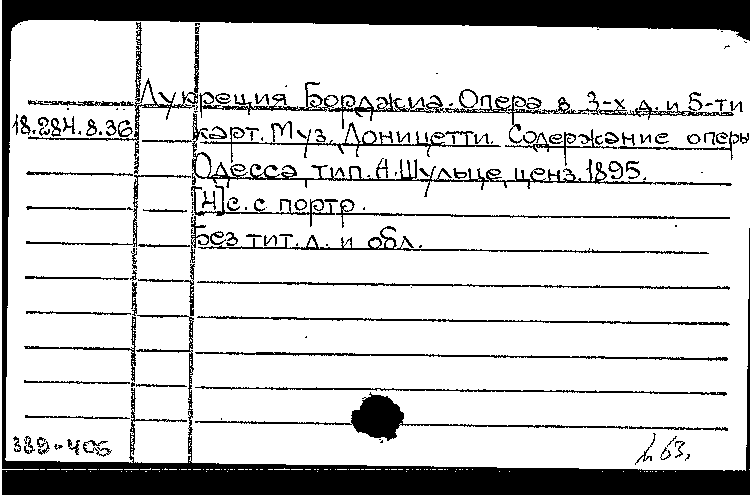 Лукреция Борджиа. Опера в 3-х д. и 5-ти
18.284.8.36 карт. Муз. Доницетти. Содержание оперы
Одесса, тип. А. Шульце, ценз. 1895.
[4]с. с портр.
Без тит. л. и обл.
389-406
63.